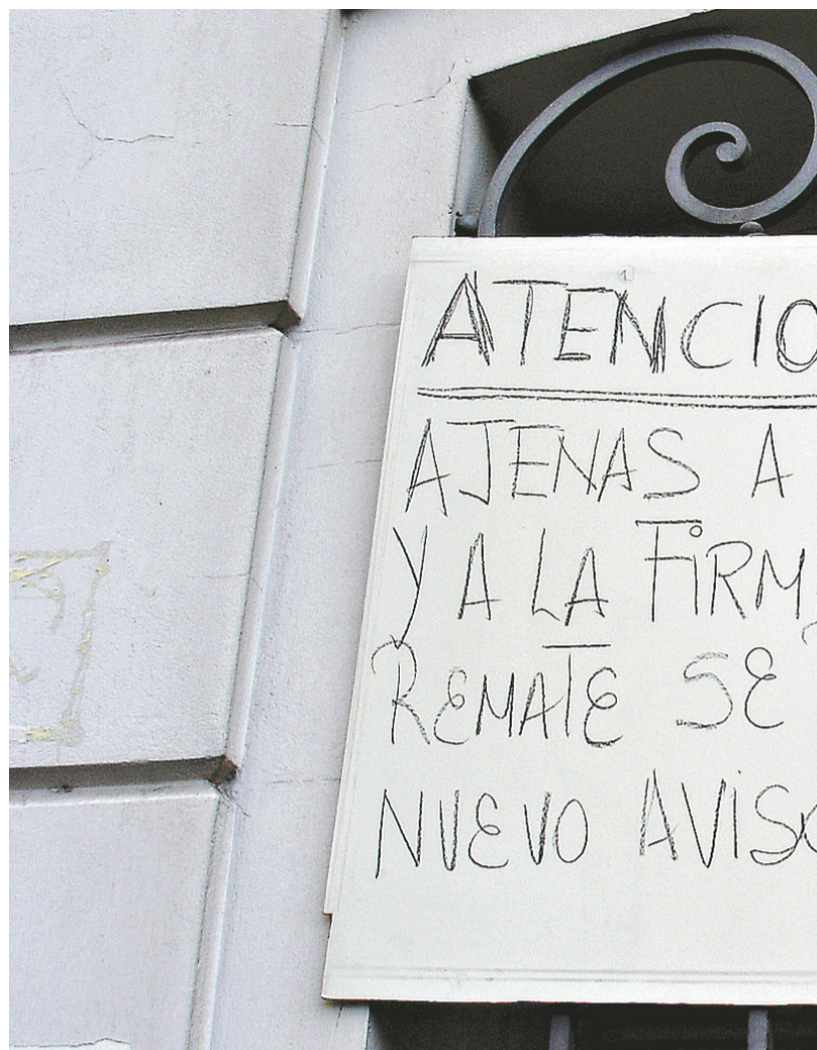 ATENCIO
AJENAS A
Y A LA FIRM
REMATE SE
NUEVO AVISO